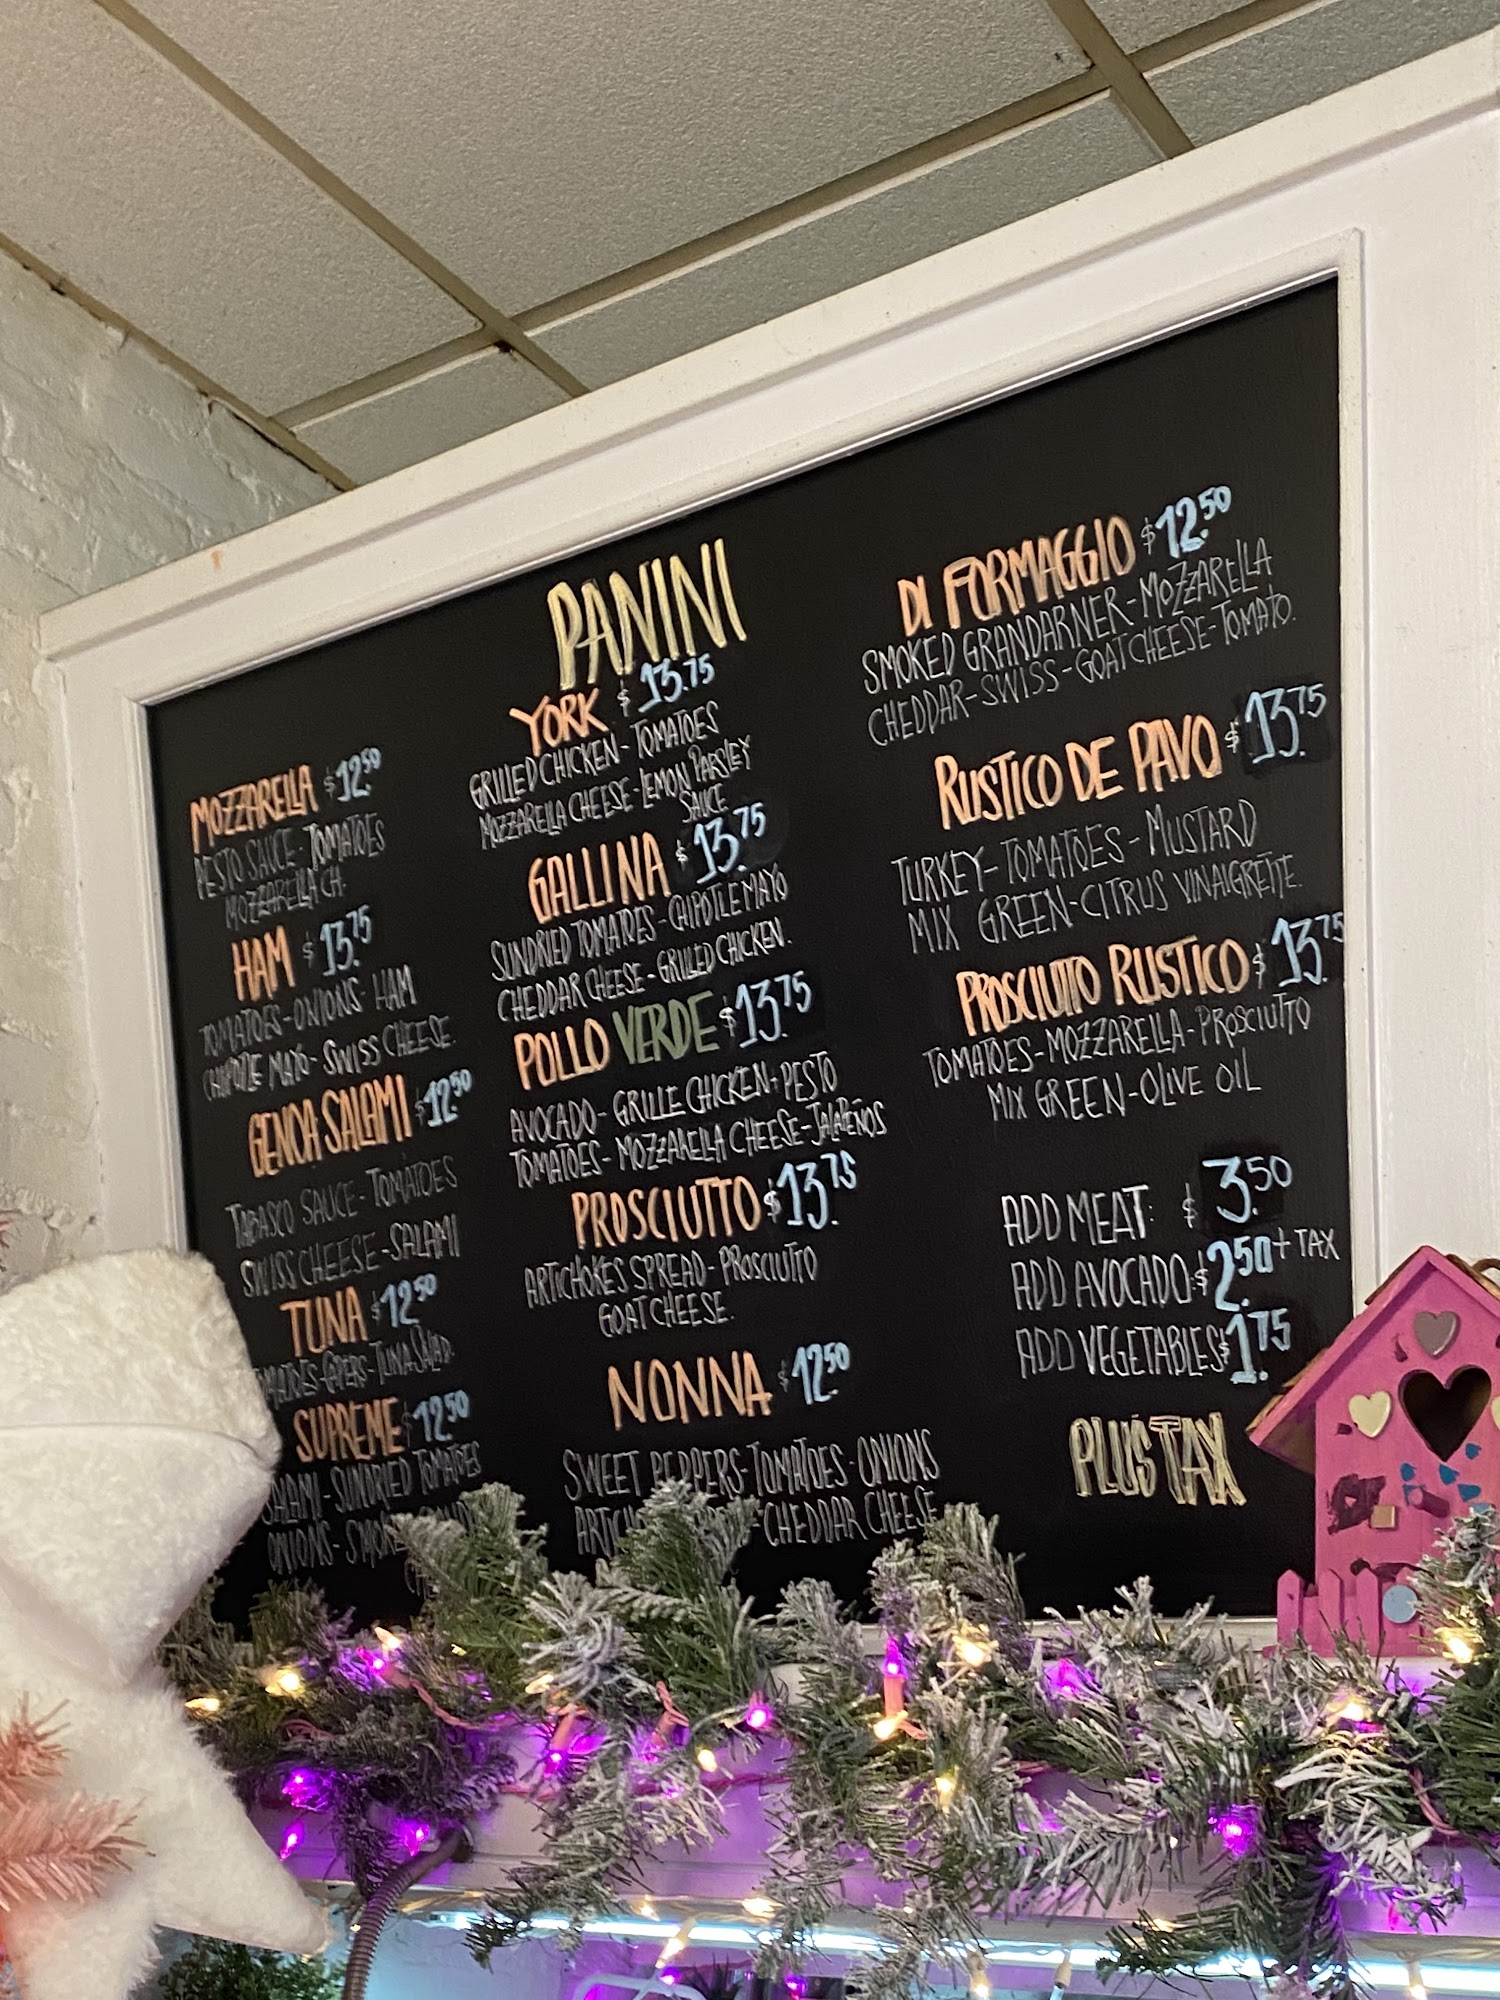 PANINI
MOZZARELLA $12.50
PESTO SAUCE - TOMATOES
MOZZARELLA CH.
HAM $13.75
TOMATOES - ONIONS - HAM
CHIPOTLE MAYO - SWISS CHEESE.
GENOA SALAMI $12.50
TABASCO SAUCE - TOMATOES
SWISS CHEESE - SALAMI
TUNA $12.50
TOMATOES - CAPERS - TUNA SALAD.
SUPREME $12.50
SALAMI - SUNDRIED TOMATOES
ONIONS -
YORK $13.75
GRILLED CHICKEN - TOMATOES
MOZZARELLA CHEESE - LEMON PARSLEY
SAUCE
GALLINA $13.75
SUNDRIED TOMATOES - CHIPOTLE MAYO
CHEDDAR CHEESE - GRILLED CHICKEN.
POLLO VERDE $13.75
AVOCADO - GRILLE CHICKEN + PESTO
TOMATOES - MOZZARELLA CHEESE - JALAPEÑOS
PROSCIUTTO $13.75
ARTICHOKES SPREAD - PROSCIUTTO
GOAT CHEESE.
NONNA $12.50
SWEET PEPPERS - TOMATOES - ONIONS
- CHEDDAR CHEESE
DI FORMAGGIO $12.50
SMOKED GRANDARNER - MOZZARELLA
CHEDDAR - SWISS - GOAT CHEESE - TOMATO.
RUSTICO DE PAVO $13.75
TURKEY - TOMATOES - MUSTARD
MIX GREEN - CITRUS VINAIGRETTE.
PROSCIUTTO RUSTICO $13.75
TOMATOES - MOZZARELLA - PROSCIUTTO
MIX GREEN - OLIVE OIL
ADD MEAT: $3.50
ADD AVOCADO: $2.50 + TAX
ADD VEGETABLES $1.75
PLUS TAX